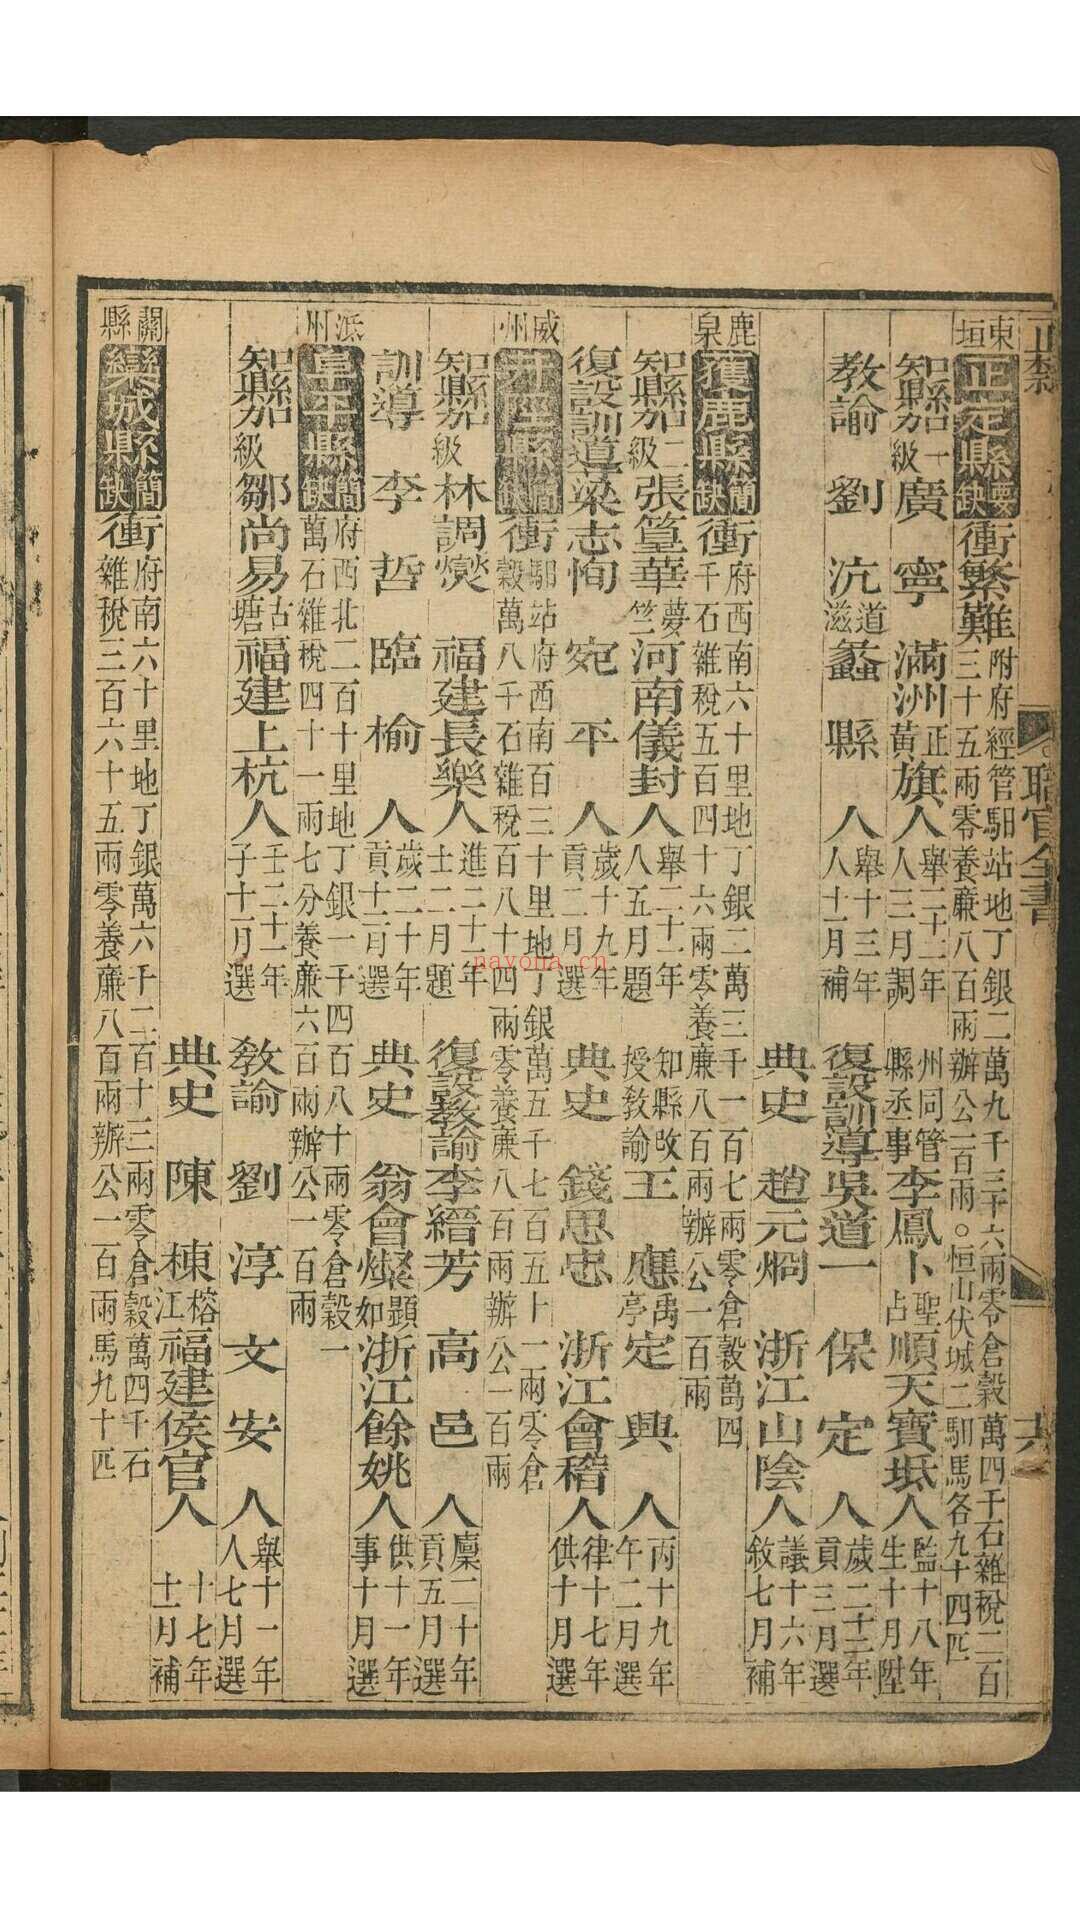 職官全書
東垣
正定縣
要缺
衝繁難
附府經管馹站地丁銀二萬九千三十六兩零倉穀萬四千石雜稅二百
三十五兩零養廉八百兩辦公二百兩○恒山伏城二馹馬各九十四匹
知縣加一級廣寧
滿洲正黃旗人
舉二十二年
人三月調
州同管
縣丞事
李鳳卜
聖占
順天寶坻人
監十八年
生十月陞
教諭
劉沆
道滋
蠡縣人
舉十三年
人十一月補
復設訓導吳道一
保定人
歲二十二年
貢三月選
典史
趙元烱
浙江山陰人
議十六年
敘七月補
鹿泉
獲鹿縣
簡缺
衝
府西南六十里地丁銀二萬三千一百七兩零倉穀萬四
千石雜稅五百四十六兩零養廉八百兩辦公一百兩
知縣加二級張篁華
夢竺
河南儀封人
舉二十二年
人五月題
知縣改
授教諭
王應
禹亭
定興人
丙十九年
午二月選
復設訓導梁志恂
宛平人
歲十九年
貢二月選
典史
錢思忠
浙江會稽人
律十七年
供十月選
威州
井陘縣
簡缺
衝
馹站府西南百三十里地丁銀萬五千七百五十一兩零倉
穀萬八千石雜稅百八十四兩零養廉八百兩辦公一百兩
知縣加級林調燮
福建長樂人
進二十一年
士二月題
復設教諭李縉芳
高邑人
廩二十年
貢五月選
訓導
李哲
臨榆人
歲二十年
貢十二月選
典史
翁會燦
顯如
浙江餘姚人
供十一年
事十月選
派州
阜平縣
簡缺
府西北二百十里地丁銀一千四百八十兩零倉穀一
萬石雜稅四十一兩七分養廉六百兩辦公一百兩
知縣加級鄒尚易
古塘
福建上杭人
壬二十一年
子十一月選
教諭
劉淳
文安人
舉十一年
人七月選
典史
陳棟
榕江
福建侯官人
十七年
十一月補
關縣
欒城縣
簡缺
衝
府南六十里地丁銀萬六千二百十三兩零倉穀萬四千石
雜稅三百六十五兩零養廉八百兩辦公一百兩馬九十匹
nayona.cn